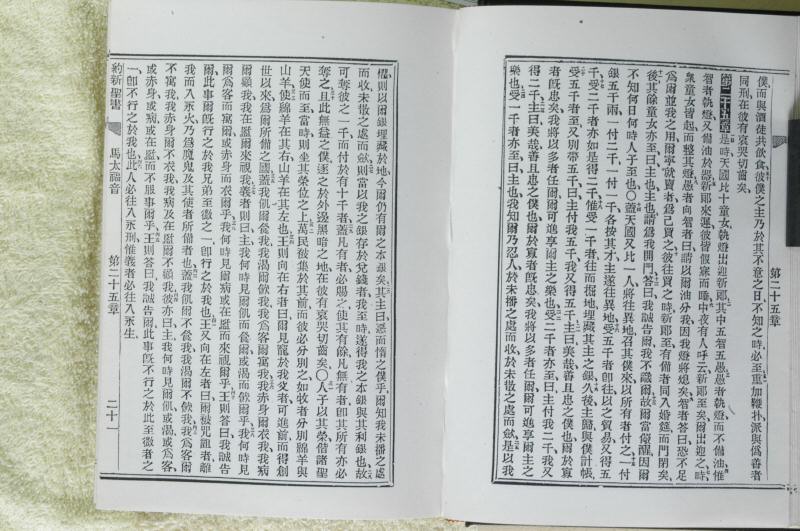 第二十五章
僕而與酒徒共飲食彼僕之主乃於其不意之日不知之時必至重加鞭扑派與僞善者
同刑在彼有哀哭切齒矣
第二十五章是時天國比十童女執燈出迎新郞其中五智五愚愚者執燈而不備油惟
智者執燈又備油於器新郞來遲彼皆假寐而睡中夜有人呼云新郞至矣爾出迎之時
童女皆起而整其燈愚者向智者曰請以爾油分我因我燈將熄矣智者答曰恐不足
爲爾並我之用爾寧就賣者爲己買之彼往買之時新郞至有備者同入婚筵而門閉矣
後其餘童女亦至曰主也主也請爲我開門答曰我誠告爾我不識爾故爾當儆醒因爾
不知何日何時人子至也〇蓋天國又比一人將往異地召其僕來以所有者付之一付
銀五千兩一付二千一付一千各按其才主遂往異地受五千者卽往以之貿易又得五
千受二千者亦如是得二千惟受一千者往而掘地埋藏其主之銀久後主歸與僕計帳
受五千者至又別帶五千曰主付我五千我又得五千主曰美哉善且忠之僕也爾於寡
者旣忠矣我將以多者任爾爾可進享爾主之樂也受二千者亦至曰主付我二千我又
得二千主曰美哉善且忠之僕也爾於寡者旣忠矣我將以多者任爾爾可進享爾主之
樂也受一千者亦至曰主也我知爾乃忍人於未播之處而收於未散之處而斂是以我
懼則以爾銀埋藏於地今爾仍有爾之本銀矣其主曰惡而惰之僕乎爾知我未播之處
而收未散之處而斂則當以我之銀存於兌錢者我至時遂得我之本銀與其利銀也故
可奪彼之一千而付於有十千者蓋凡有者必賜之使其有餘凡無有者卽其所有亦必
奪之且此無益之僕逐之於外邊黑暗之地在彼有哀哭切齒矣〇人子以其榮偕諸聖
天使而至當時則坐其榮位之上萬民彼集於其前而彼必分別之如牧者分別綿羊與
山羊使綿羊在其右山羊在其左也王則向在右者曰爾見寵於我父者可進前而得創
世以來爲爾所備之國蓋我飢爾餐我我渴爾飲我我爲客爾寓我我赤身爾衣我我病
爾顧我我在監爾來視我義者則曰主我何時見爾飢而餐爾或渴而飲爾乎我何時見
爾爲客而寓爾或赤身而衣爾乎我何時見爾病或在監而來視爾乎王則答曰我誠告
爾此事爾旣行之於我兄弟至微之一卽行之於我也王又向在左者曰爾被咒詛者離
我而入永火乃爲魔鬼及其使者所備者也蓋我飢爾不餐我我渴爾不飲我我爲客爾
不寓我我赤身爾不衣我我病及在監爾不顧我彼亦曰主我何時見爾飢或渴或爲客
或赤身或病或在監而不服事爾乎王則答曰我誠告爾此事旣不行之於此至微者之
一卽不行之於我也此人必往入永刑惟義者必往入永生
約新聖書 馬太福音 第二十五章 二十一